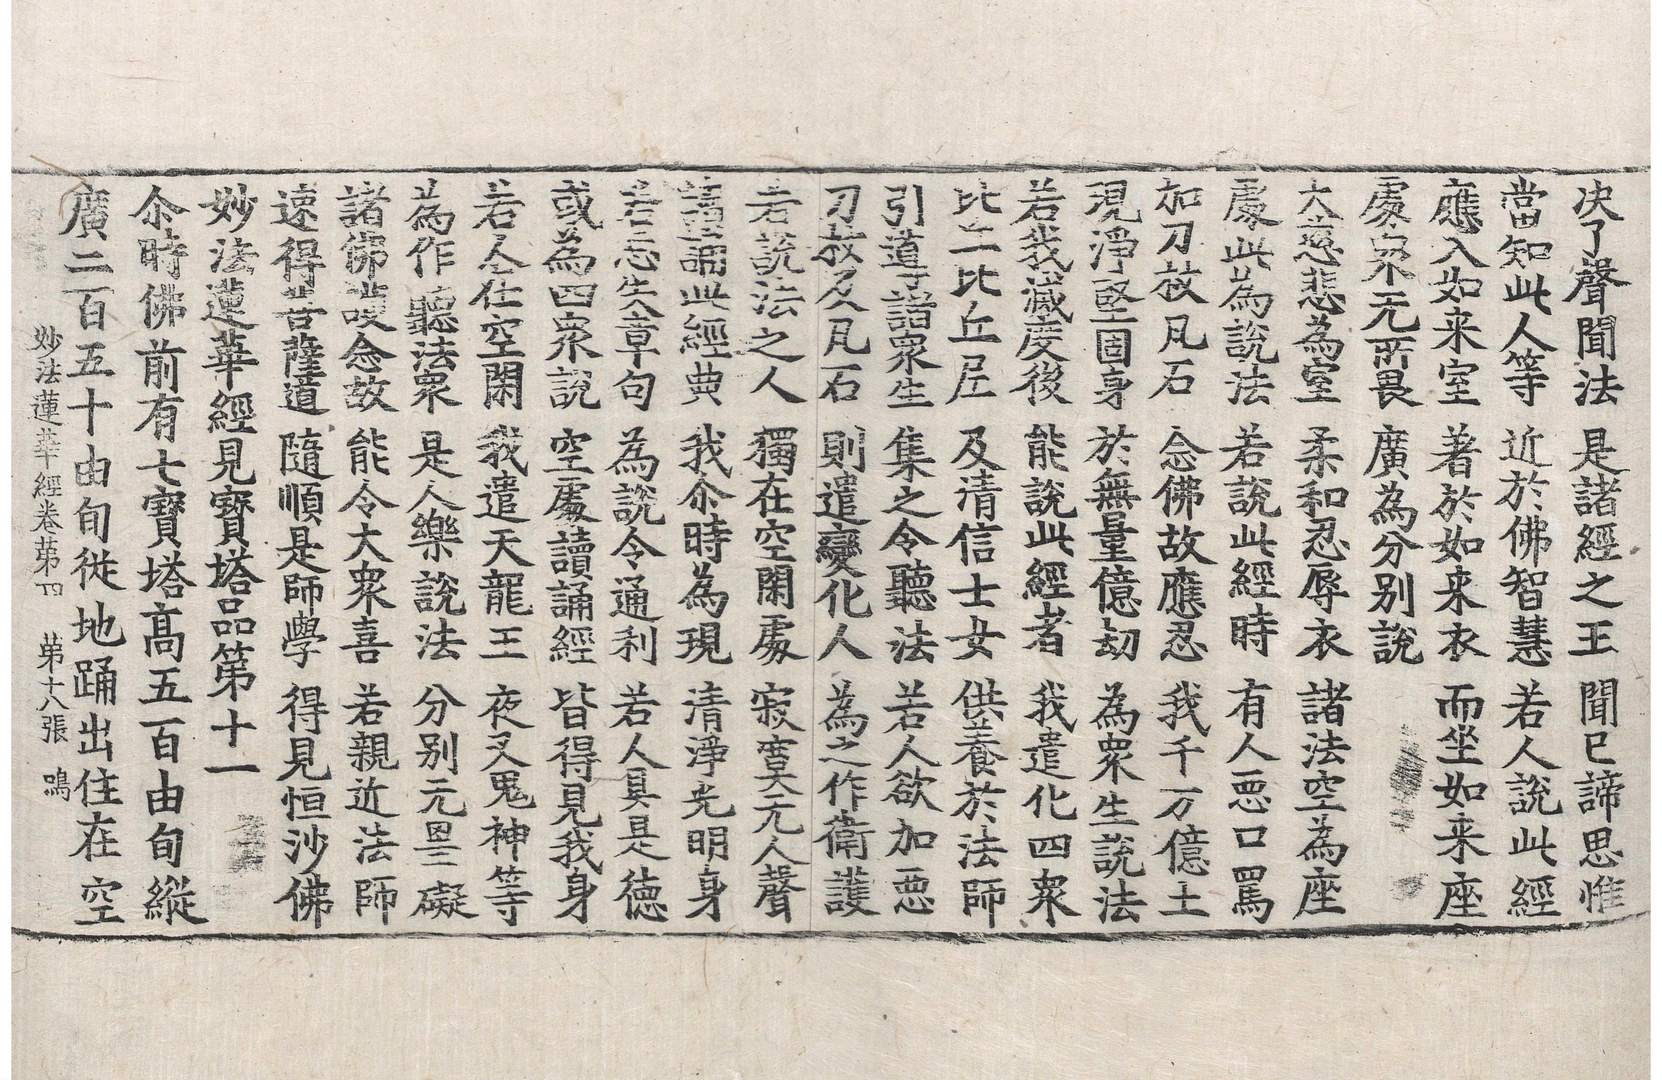 决了聲聞法 是諸經之王 聞已諦思惟
當知此人等 近於佛智慧 若人說此經
應入如来室 著於如来衣 而坐如来座
處衆无所畏 廣為分别說
大慈悲為室 柔和忍辱衣 諸法空為座
處此為說法 若說此經時 有人惡口罵
加刀杖凡石 念佛故應忍 我千万億土
現淨堅固身 於無量億劫 為衆生說法
若我滅度後 能說此經者 我遣化四衆
比丘比丘尼 及清信士女 供養於法師
引導諸衆生 集之令聽法 若人欲加惡
刀杖及凡石 則遣變化人 為之作衛護
若說法之人 獨在空閑處 寂寞无人聲
讀誦此經典 我尒時為現 清淨光明身
若忘失章句 為說令通利 若人具是德
或為四衆說 空處讀誦經 皆得見我身
若人在空閑 我遣天龍王 夜叉鬼神等
為作聽法衆 是人樂說法 分别无罣礙
諸佛護念故 能令大衆喜 若親近法師
速得菩薩道 隨順是師學 得見恒沙佛
妙法蓮華經見寶塔品第十一
尒時佛前有七寶塔高五百由旬縱
廣二百五十由旬從地踊出住在空
妙法蓮華經卷苐四 苐十八張 鳴